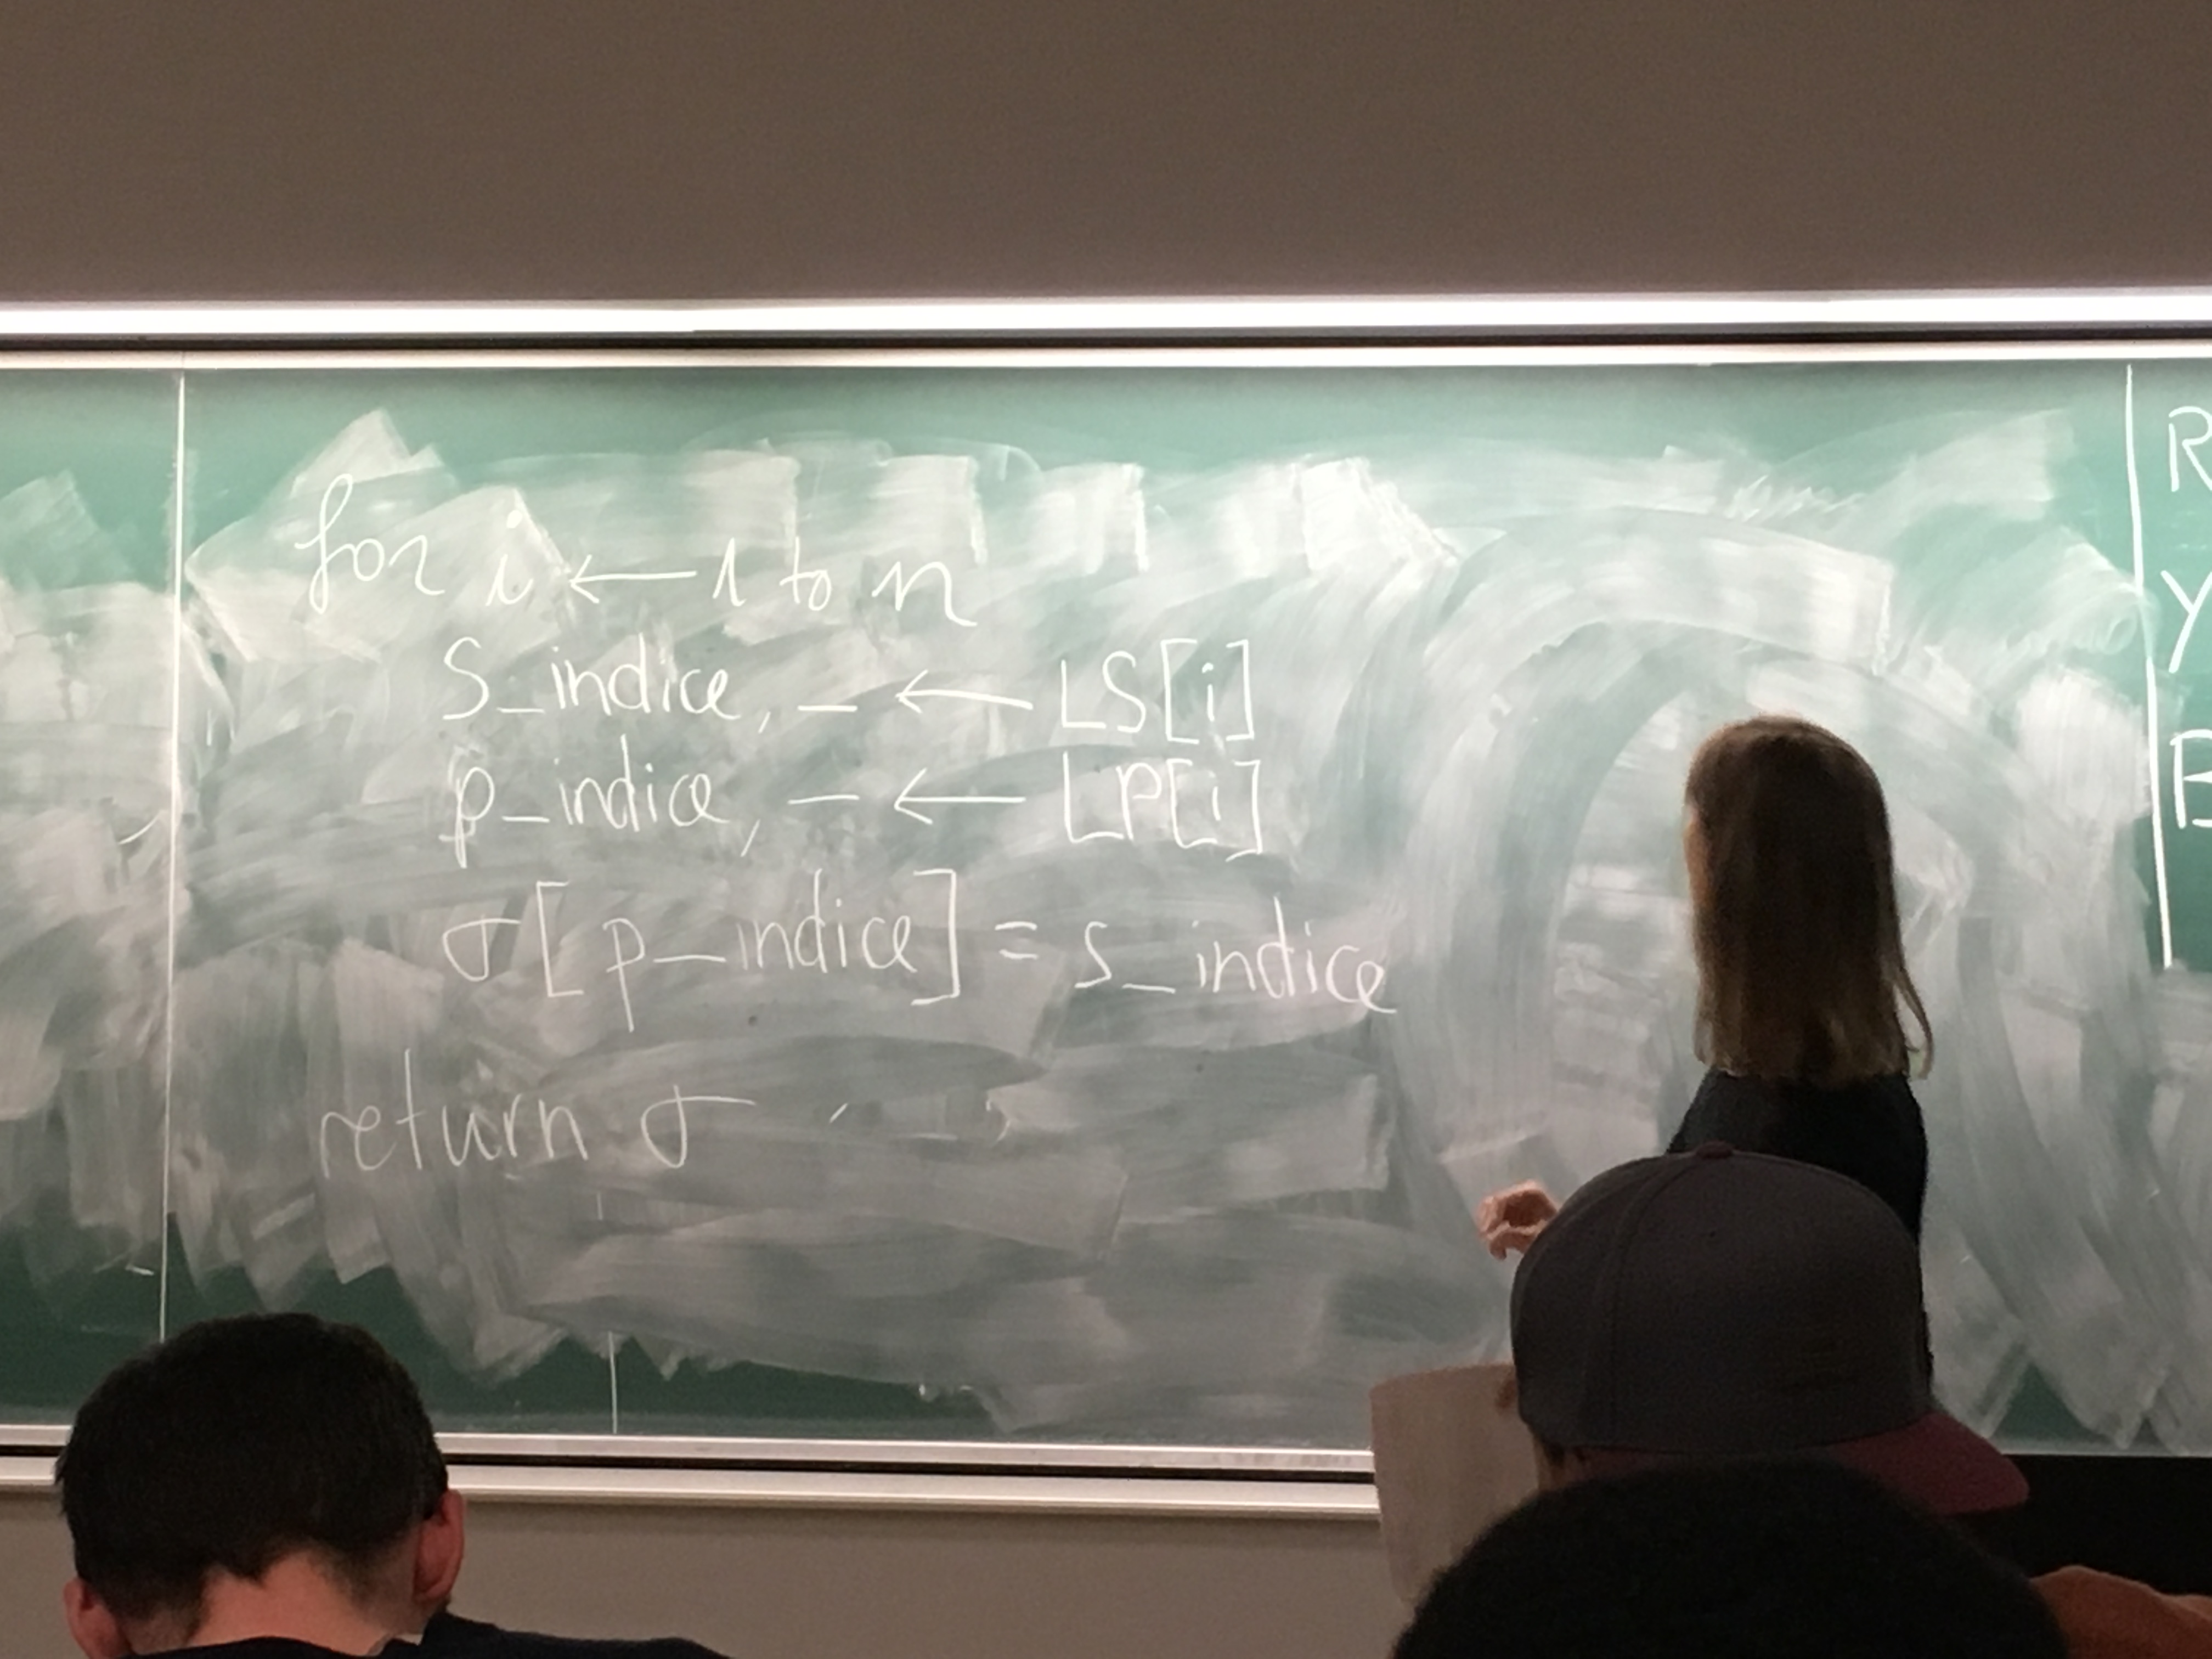 for i ← 1 to n
S_indice, _ ← LS[i]
p_indice, _ ← LP[i]
σ[p_indice] = s_indice
return σ
R
Y